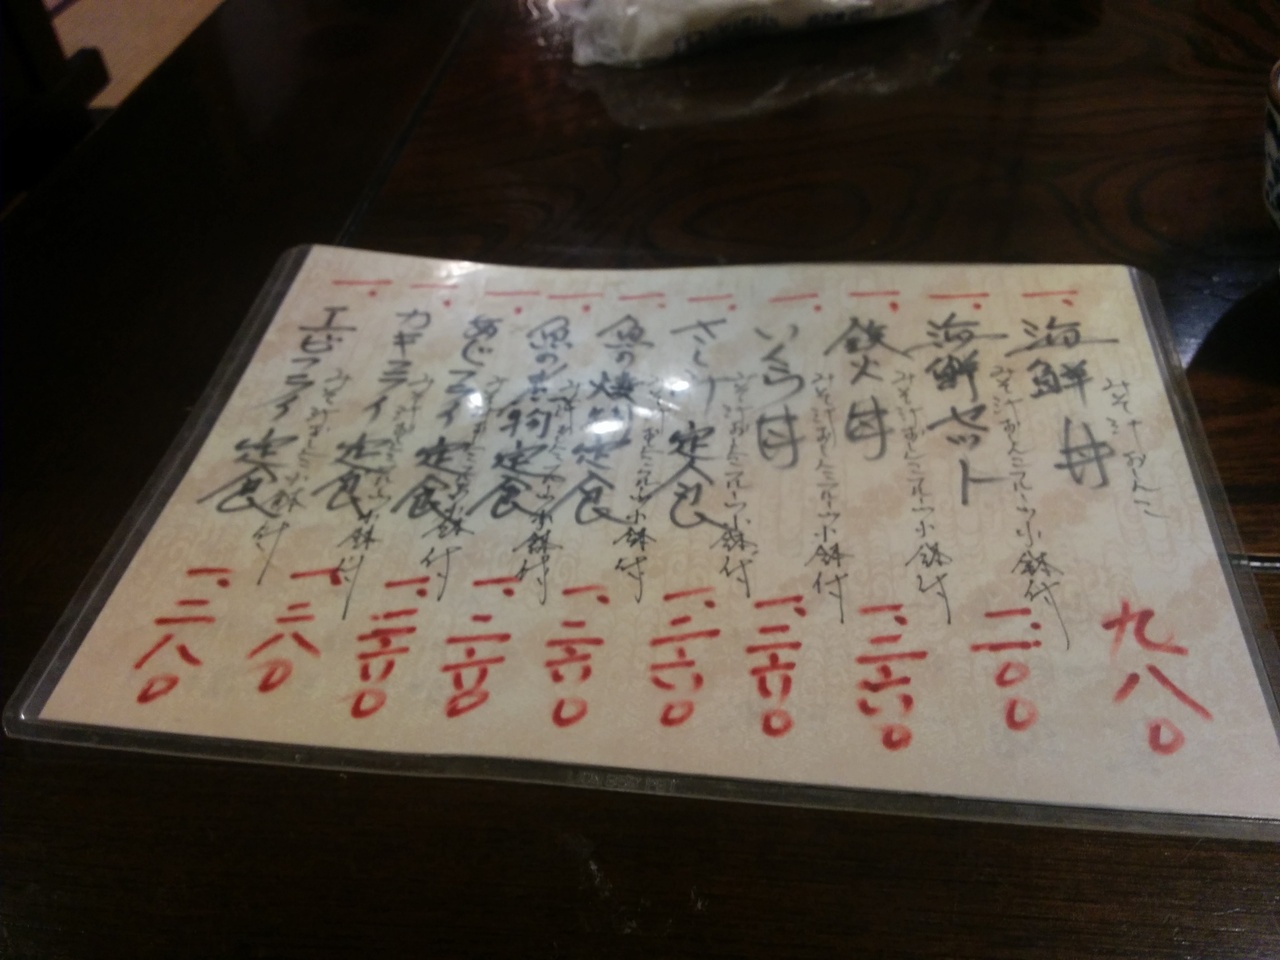 一、海鮮丼 みそ汁おしんこ 九八〇
一、海鮮セット みそ汁おしんこフルーツ小鉢付 一、一〇〇
一、鉄火丼 みそ汁おしんこフルーツ小鉢付 一、二六〇
一、いくら丼 みそ汁おしんこフルーツ小鉢付 一、二六〇
一、さしみ定食 みそ汁おしんこフルーツ小鉢付 一、二六〇
一、魚の焼物定食 みそ汁おしんこフルーツ小鉢付 一、二六〇
一、魚の煮物定食 みそ汁おしんこフルーツ小鉢付 一、二六〇
一、あじフライ定食 みそ汁おしんこフルーツ小鉢付 一、二六〇
一、カキフライ定食 みそ汁おしんこフルーツ小鉢付 一、二八〇
一、エビフライ定食 みそ汁おしんこ小鉢付 一、二八〇